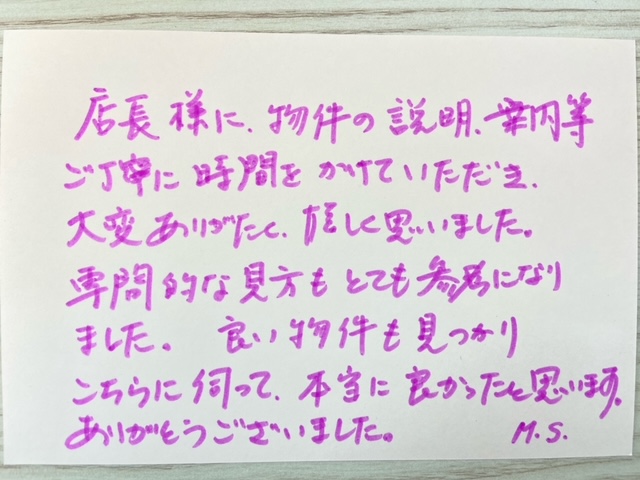 店長様に、物件の説明、案内等
ご丁寧に時間をかけていただき、
大変ありがたく、嬉しく思いました。
専門的な見方もとても参考になり
ました。 良い物件も見つかり
こちらに伺って、本当に良かったと思います。
ありがとうございました。 M.S.